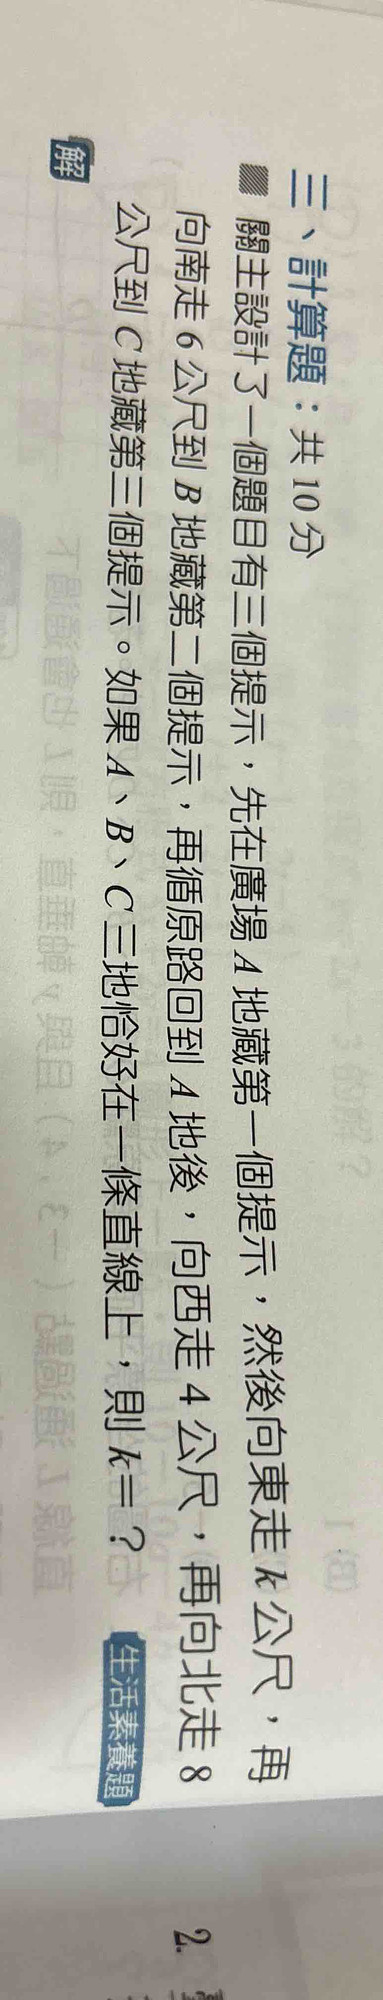 三、計算題：共 10 分
關主設計了一個題目有三個提示，先在廣場 A 地藏第一個提示，然後向東走 k 公尺，再
向南走 6 公尺到 B 地藏第二個提示，再循原路回到 A 地後，向西走 4 公尺，再向北走 8
公尺到 C 地藏第三個提示。如果 A、B、C 三地恰好在一條直線上，則 k＝？ 生活素養題
解
2.